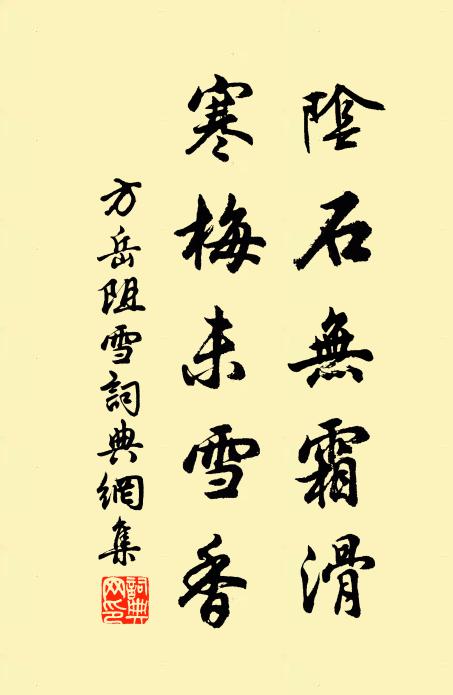 陰石無霜滑
寒梅未雪香
方岳阻雪詞典網集
詞典網印